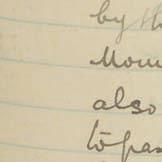 by th
Mour
also
to pas